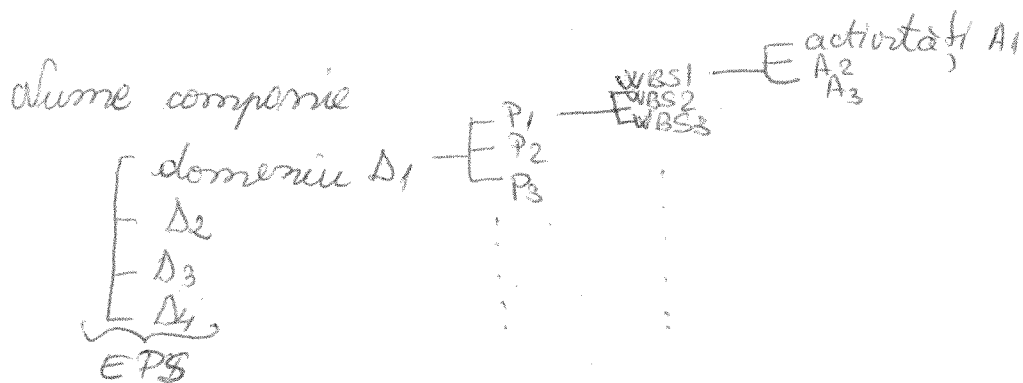 Nume companie
domeniu D1
D2
D3
D4
EPS
P1
P2
P3
WBS1
WBS2
WBS3
activităţi A1
A2
A3